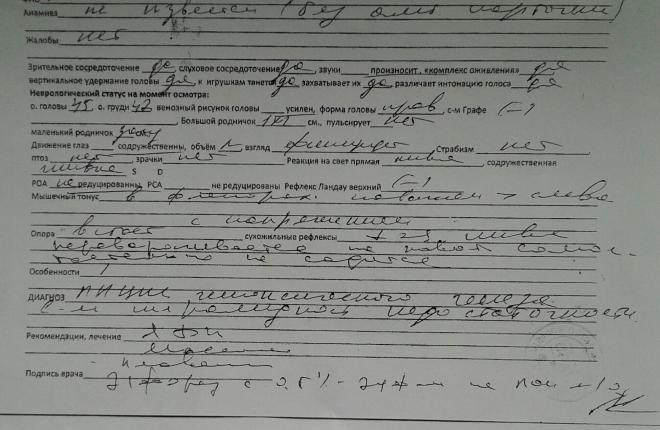 Анамнез не известен (без амб карточки)
Жалобы нет
Зрительное сосредоточение да слуховое сосредоточение да, звуки произносит, «комплекс оживления» да
вертикальное удержание головы да, к игрушкам тянется да захватывает их да, различает интонацию голоса да
Неврологический статус на момент осмотра:
о. головы 45 о. груди 42 венозный рисунок головы усилен, форма головы прав, с-м Графе (–)
, Большой родничок 1х1 см., пульсирует нет
маленький родничок закр
Движение глаз содружественны, объём взгляд фиксирует Страбизм нет
птоз нет зрачки Реакция на свет прямая живая, содружественная
живая S D
РОА не редуцированны, РСА не редуцированы Рефлекс Ландау верхний (–)
Мышечный тонус в > слева
Опора встает с напряжением сухожильные рефлексы живые
переворачивается на живот самос-
тоятельно не садится
Особенности
ДИАГНОЗ ППЦНС гипоксического генеза
с-м пирамидной недостаточности
Рекомендации, лечение ЛФК
Массаж
Плавание
Подпись врача Эл/форез с 0,5% - на